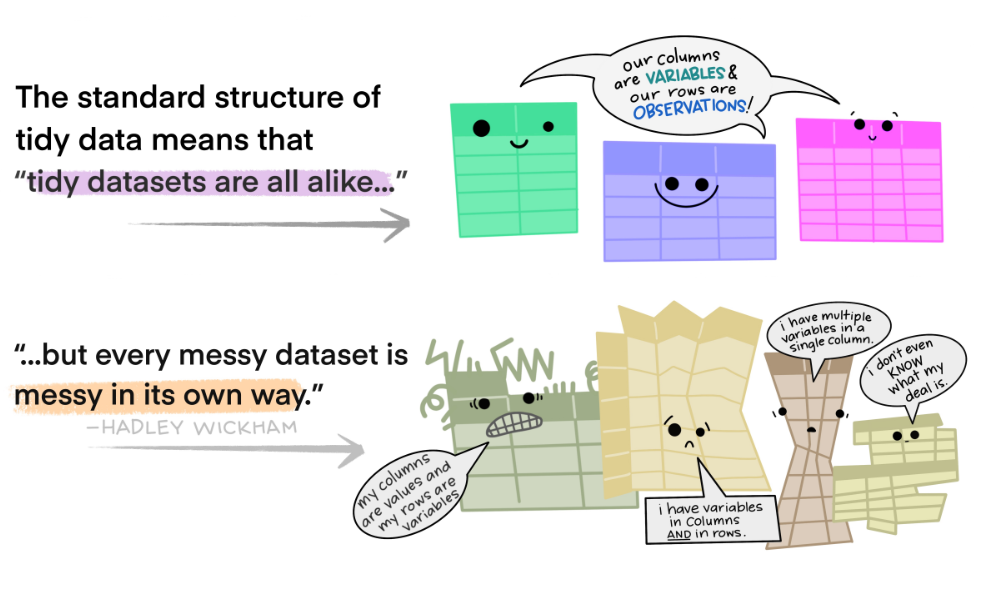 The standard structure of
tidy data means that
“tidy datasets are all alike...”
our columns
are VARIABLES &
our rows are
OBSERVATIONS!
“...but every messy dataset is
messy in its own way.”
—HADLEY WICKHAM
my columns
are values and
my rows are
variables
i have variables
in columns
AND in rows.
i have multiple
variables in a
single column.
i don't even
KNOW
what my
deal is.